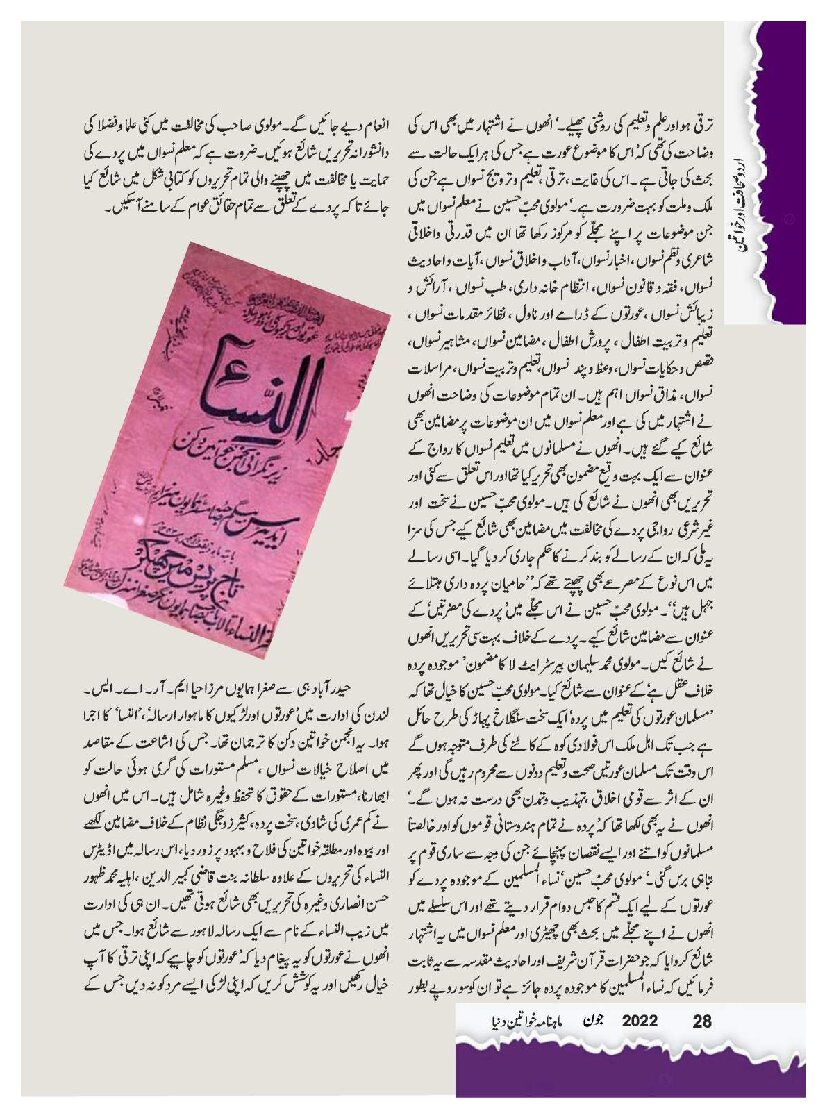 اردو صحافت اور خواتین
ترقی ہو اور علم و تعلیم کی روشنی پھیلے۔‘ انھوں نے اشتہار میں بھی اس کی
وضاحت کی تھی کہ ’اس کا موضوع عورت ہے جس کی ہر ایک حالت سے
بحث کی جاتی ہے۔ اس کی غایت، ترقی، تعلیم و ترویج نسواں ہے جن کی
ملک و ملت کو بہت ضرورت ہے۔‘ مولوی محبّ حسین نے معلم نسواں میں
جن موضوعات پر اپنے مجلّے کو مرکوز رکھا تھا ان میں قدرتی و اخلاقی
شاعری و نظم نسواں، اخبار نسواں، آداب و اخلاق نسواں، آیات و احادیث
نسواں، فقہ و قانون نسواں، انتظام خانہ داری، طب نسواں، آرائش و
زیبائش نسواں، عورتوں کے ڈرامے اور ناول، نظائر مقدمات نسواں،
تعلیم و تربیت اطفال، پرورش اطفال، مضامین نسواں، مشاہیر نسواں،
قصص و حکایات نسواں، وعظ و پند نسواں، تعلیم و تربیت نسواں، مراسلات
نسواں، مذاق نسواں اہم ہیں۔ ان تمام موضوعات کی وضاحت انھوں
نے اشتہار میں کی ہے اور معلم نسواں میں ان موضوعات پر مضامین بھی
شائع کیے گئے ہیں۔ انھوں نے مسلمانوں میں تعلیم نسواں کا رواج کے
عنوان سے ایک بہت وقیع مضمون بھی تحریر کیا تھا اور اس تعلق سے کئی اور
تحریریں بھی انھوں نے شائع کی ہیں۔ مولوی محبّ حسین نے سخت اور
غیر شرعی رواجی پردے کی مخالفت میں مضامین بھی شائع کیے جس کی سزا
یہ ملی کہ ان کے رسالے کو بند کرنے کا حکم جاری کر دیا گیا۔ اسی رسالے
میں اس نوع کے مصرعے بھی چھپتے تھے کہ ”حامیان پردہ داری مبتلائے
جہل ہیں“۔ مولوی محبّ حسین نے اس مجلّے میں ’پردے کی مضرتیں‘ کے
عنوان سے مضامین شائع کیے۔ پردے کے خلاف بہت سی تحریریں انھوں
نے شائع کیں۔ مولوی محمد سلیمان بیرسٹر ایٹ لا کا مضمون ’موجودہ پردہ
خلاف عقل ہے‘ کے عنوان سے شائع کیا۔ مولوی محبّ حسین کا خیال تھا کہ
’مسلمان عورتوں کی تعلیم میں پردہ ایک سخت سنگلاخ پہاڑ کی طرح حائل
ہے جب تک اہل ملک اس فولادی کوہ کے کاٹنے کی طرف متوجہ ہوں گے
اس وقت تک مسلمان عورتیں صحت و تعلیم دونوں سے محروم رہیں گی اور پھر
ان کے اثر سے قومی اخلاق، تہذیب و تمدن بھی درست نہ ہوں گے۔‘
انھوں نے یہ بھی لکھا تھا کہ ’پردہ نے تمام ہندوستانی قوموں کو اور خالصتاً
مسلمانوں کو اتنے اور ایسے نقصان پہنچائے جن کی وجہ سے ساری قوم پر
تباہی برس گئی۔‘ مولوی محبّ حسین ’نساء المسلمین کے موجودہ پردے کو
عورتوں کے لیے ایک قسم کا حبس دوام قرار دیتے تھے اور اس سلسلے میں
انھوں نے اپنے مجلّے میں بحث بھی چھیڑی اور معلم نسواں میں یہ اشتہار
شائع کروایا کہ جو حضرات قرآن شریف اور احادیث مقدسہ سے یہ ثابت
فرمائیں کہ نساء المسلمین کا موجودہ پردہ جائز ہے تو ان کو سو روپے بطور
انعام دیے جائیں گے۔ مولوی صاحب کی مخالفت میں کئی علما و فضلا کی
دانشورانہ تحریریں شائع ہوئیں۔ ضرورت ہے کہ معلم نسواں میں پردے کی
حمایت یا مخالفت میں چھپنے والی تمام تحریروں کو کتابی شکل میں شائع کیا
جائے تاکہ پردے کے تعلق سے تمام حقائق عوام کے سامنے آسکیں۔
النساء
جلد
زیر نگرانی انجمن خواتین دکن
تاج پریس
حیدرآباد ہی سے صغرا ہمایوں مرزا حیا ایم۔ آر۔ اے۔ ایس۔
لندن کی ادارت میں ’عورتوں اور لڑکیوں کا ماہوار ارسالہ‘، ’النسا‘ کا اجرا
ہوا۔ یہ انجمن خواتین دکن کا ترجمان تھا۔ جس کی اشاعت کے مقاصد
میں اصلاح خیالات نسواں، مسلم مستورات کی گری ہوئی حالت کو
ابھارنا، مستورات کے حقوق کا تحفظ وغیرہ شامل ہیں۔ اس میں انھوں
نے کم عمری کی شادی، سخت پردہ، کثیر زوجگی نظام کے خلاف مضامین لکھے
اور بیوہ اور مطلقہ خواتین کی فلاح و بہبود پر زور دیا، اس رسالہ میں اڈیٹرس
النساء کی تحریروں کے علاوہ سلطانہ بنت قاضی کبیر الدین، اہلیہ محمد ظہور
حسن انصاری وغیرہ کی تحریریں بھی شائع ہوتی تھیں۔ ان ہی کی ادارت
میں زیب النساء کے نام سے ایک رسالہ لاہور سے شائع ہوا۔ جس میں
انھوں نے عورتوں کو یہ پیغام دیا کہ ’عورتوں کو چاہیے کہ اپنی ترقی کا آپ
خیال رکھیں اور یہ کوشش کریں کہ اپنی لڑکی ایسے مرد کو نہ دیں جس کے
ماہنامہ خواتین دنیا جون 2022 28